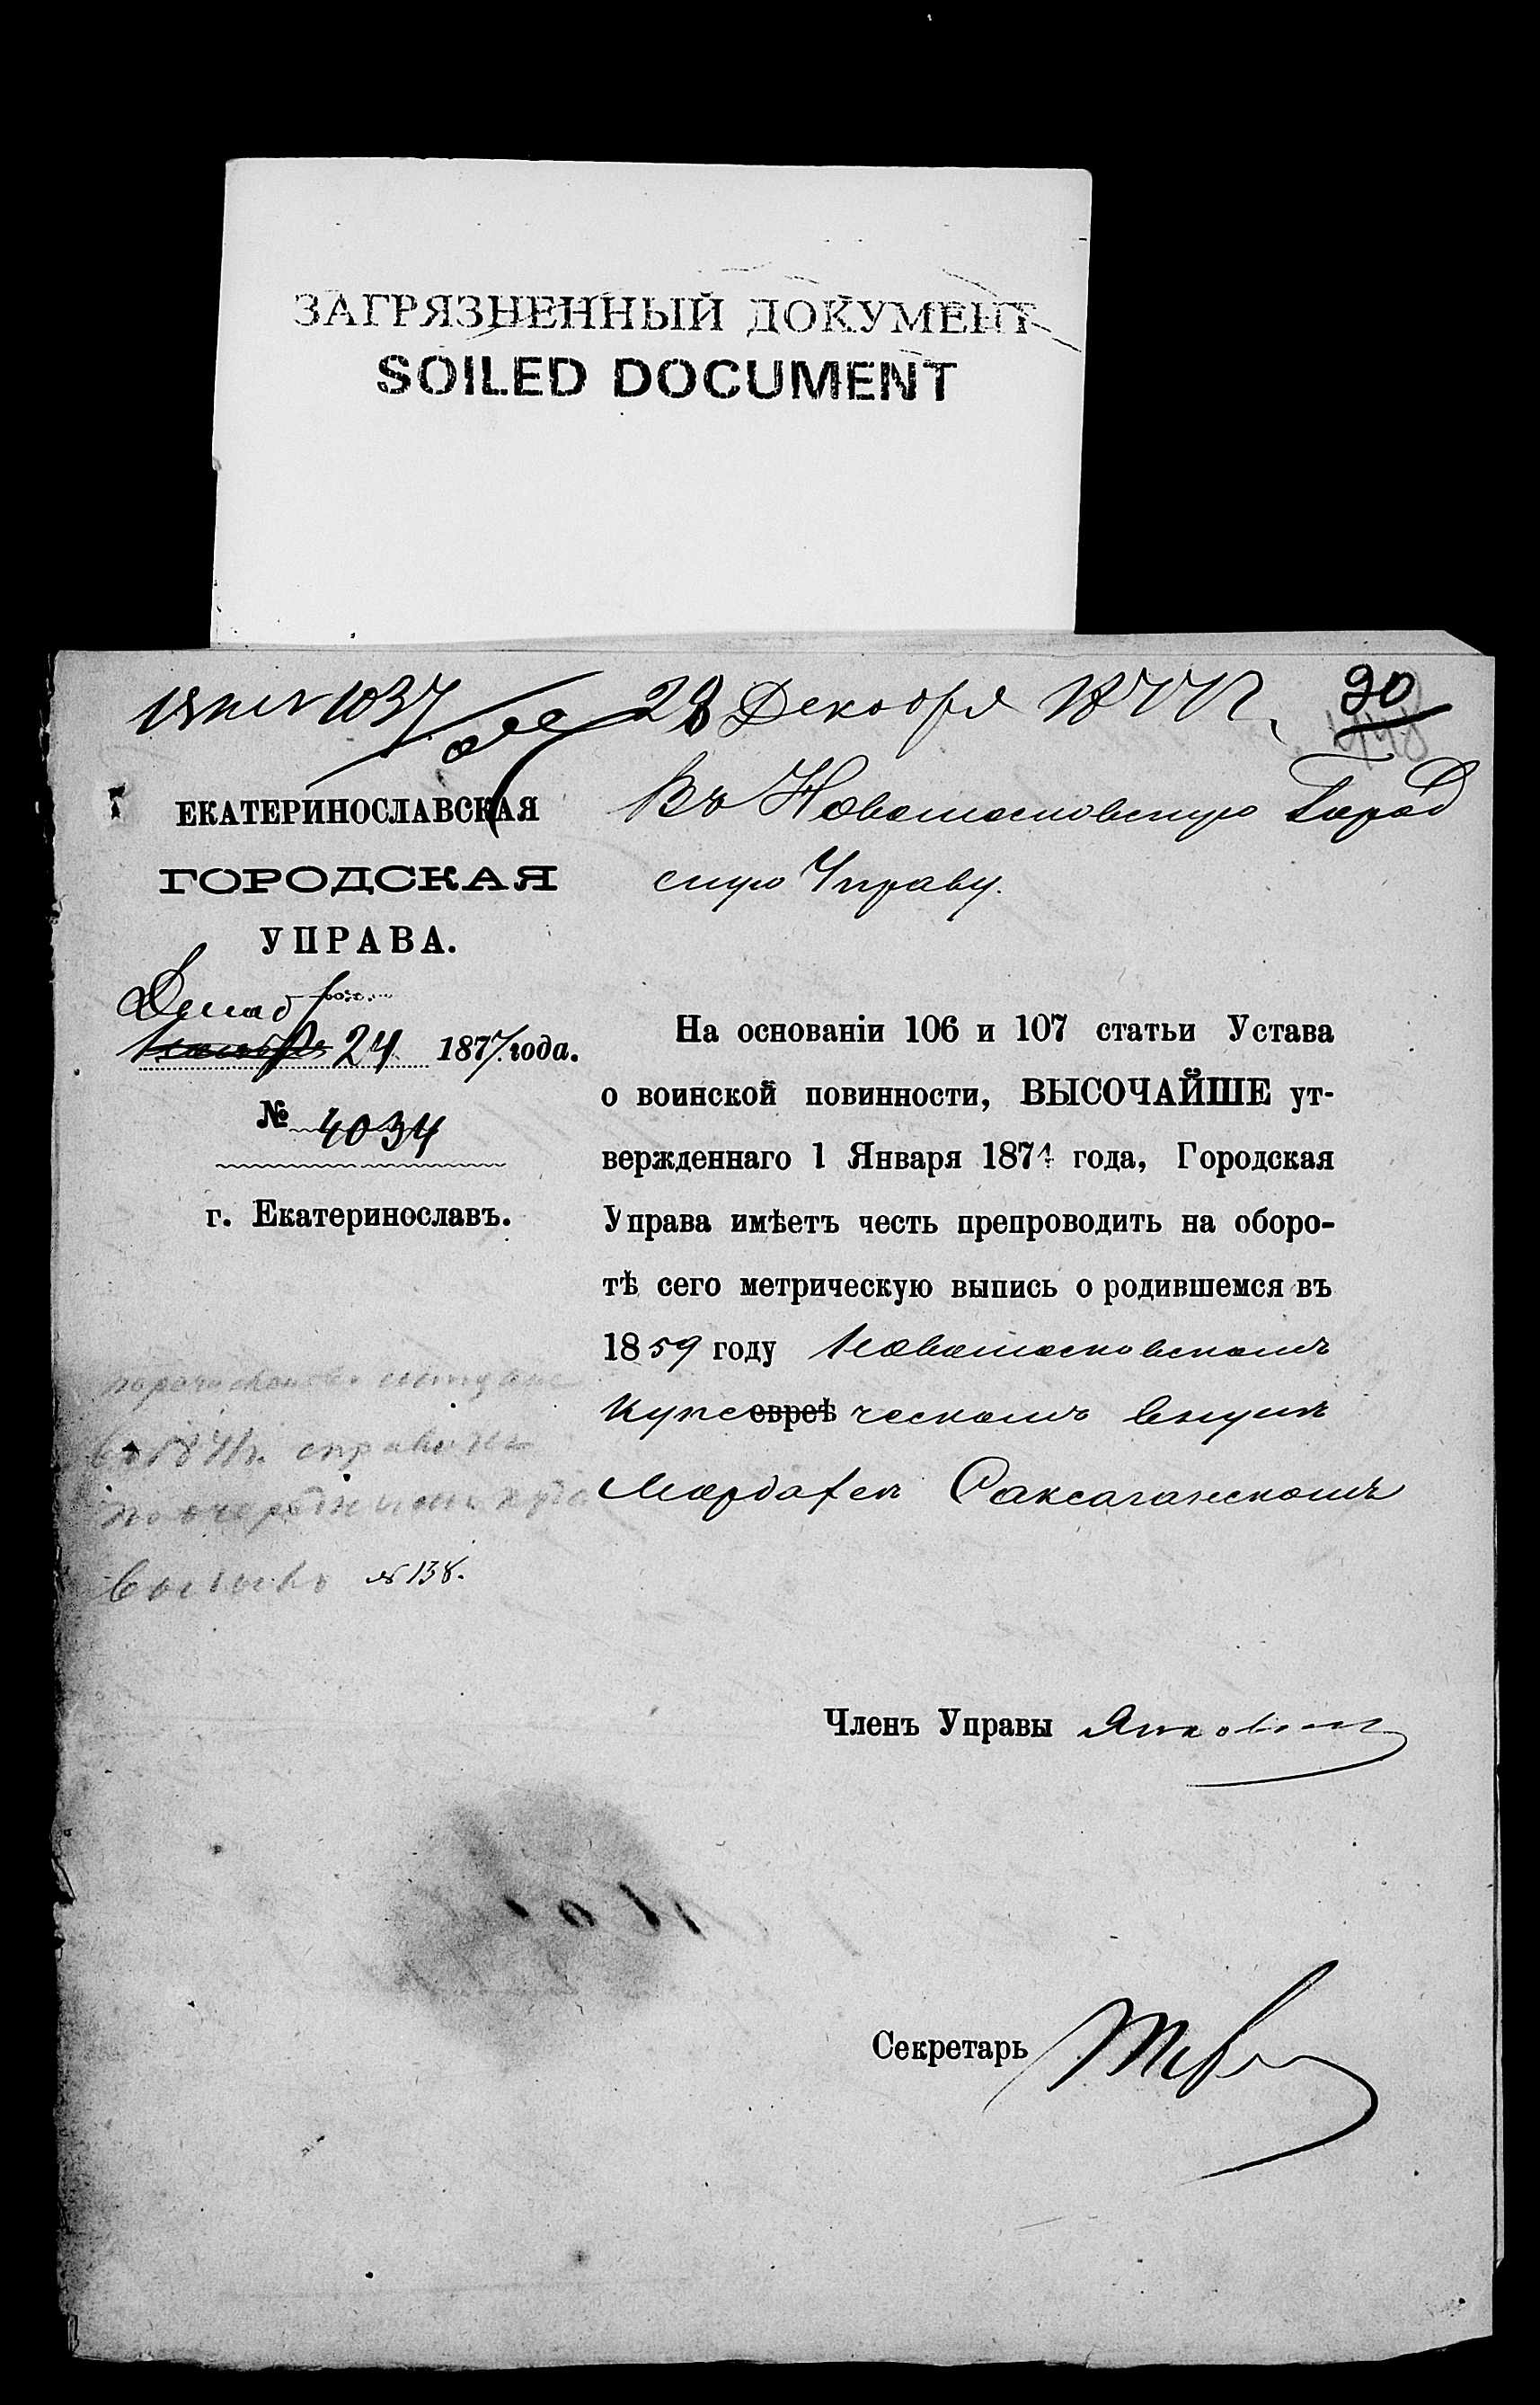 ЗАГРЯЗНЕННЫЙ ДОКУМЕНТ
SOILED DOCUMENT
28 Декабря 1877 г.
90
448
ЕКАТЕРИНОСЛАВСКАЯ
ГОРОДСКАЯ
УПРАВА.
Декаб
24 1877 года.
№ 4034
г. Екатеринославъ.
Въ Новомосковскую Город
скую Управу.
На основаніи 106 и 107 статьи Устава
о воинской повинности, ВЫСОЧАЙШЕ ут-
вержденнаго 1 Января 1874 года, Городская
Управа имѣетъ честь препроводить на оборо-
тѣ сего метрическую выпись о родившемся въ
1859 году Новомосковскомъ
Купе евреѣ ческомъ внукѣ
Мордахеѣ Саксаганскомъ
№ 138.
Членъ Управы
Секретарь